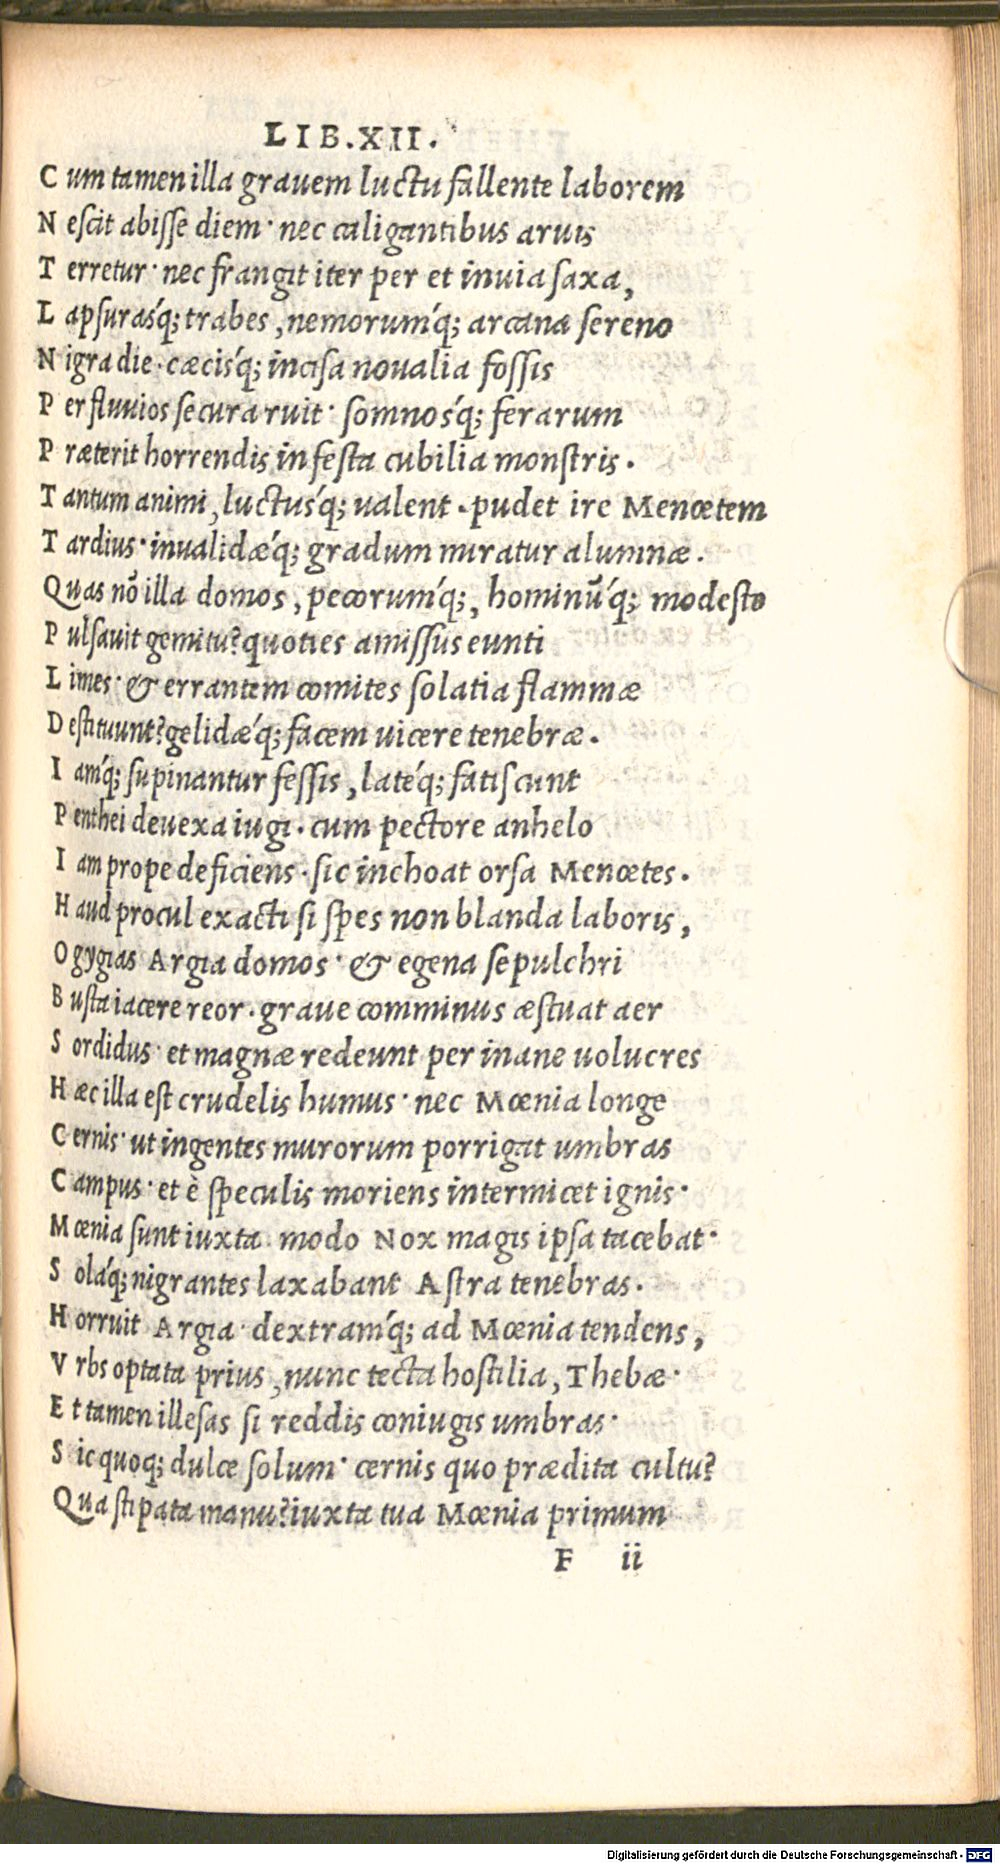 LIB.XII.
C um tamen illa grauem luctu fallente laborem
N escit abisse diem· nec caligantibus aruis
T erretur· nec frangit iter per et inuia saxa,
L apsurasq́; trabes, nemorumq́; arcana sereno
N igra die· cæcisq́; incisa noualia fossis
P er fluuios secura ruit· somnosq́; ferarum
P ræterit horrendis infesta cubilia monstris.
T antum animi, luctusq́; ualent. pudet ire Menœtem
T ardius· inualidæq́; gradum miratur alumnæ.
Quas nõ illa domos, pecorumq́;, hominũq́; modesto
P ulsauit gemitu? quoties amissus eunti
L imes· & errantem comites solatia flammæ
D estituunt? gelidæq́; facem uicere tenebræ.
I amq́; supinantur fessis, lateq́; fatiscunt
P enthei deuexa iugi. cum pectore anhelo
I am prope deficiens· sic inchoat orsa Menœtes.
H aud procul exacti si spes non blanda laboris,
O gygias Argia domos· & egena sepulchri
B usta iacere reor. graue comminus æstuat aer
S ordidus· et magnæ redeunt per inane uolucres
H æc illa est crudelis humus· nec Mœnia longe
C ernis· ut ingentes murorum porrigat umbras
C ampus· et è speculis moriens intermicet ignis·
Mœnia sunt iuxta· modo Nox magis ipsa tacebat·
S olaq́; nigrantes laxabant Astra tenebras.
H orruit Argia· dextramq́; ad Mœnia tendens,
V rbs optata prius, nunc tecta hostilia, Thebæ·
E t tamen illesas si reddis coniugis umbras·
S ic quoq; dulce solum· cernis quo prædita cultu?
Qua stipata manu? iuxta tua Mœnia primum
F ii
Digitalisierung gefördert durch die Deutsche Forschungsgemeinschaft - DFG